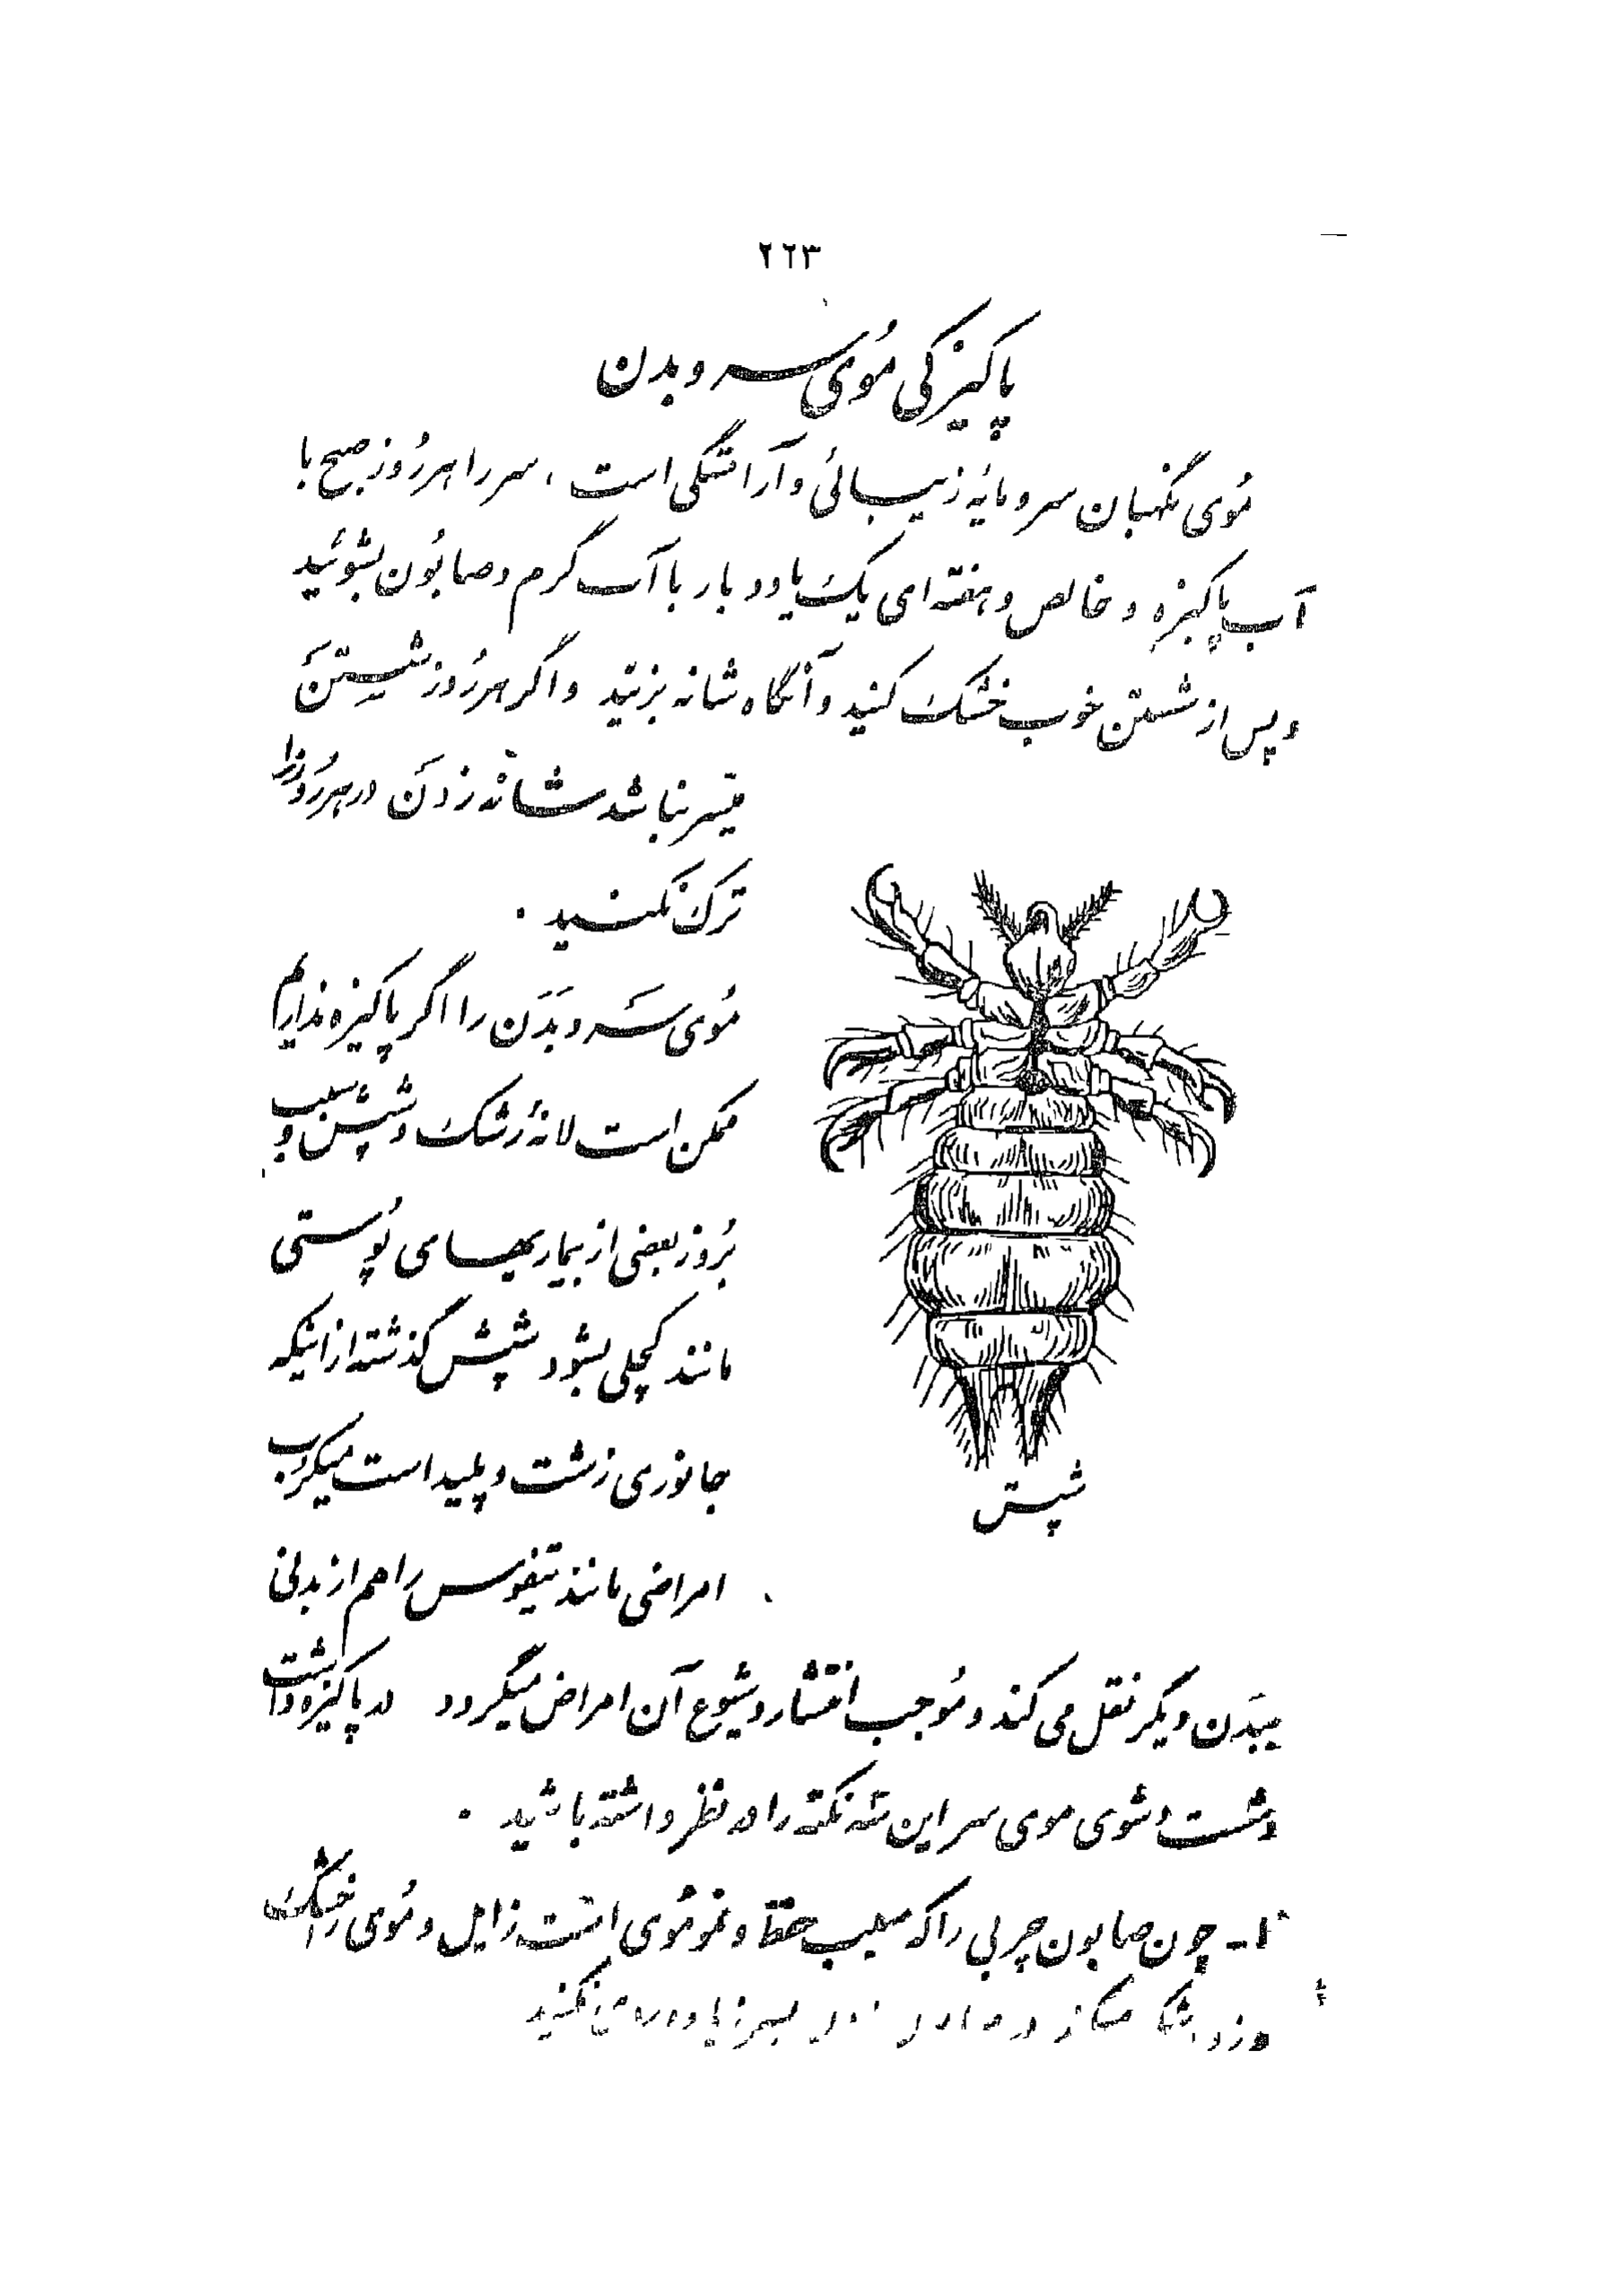 ۲۲۳
پاکیزگی مُوی سر و بدن
مُوی نگهبان سر و مایهٔ زیبائی و آراستگی است ، سر را هر رُوز صبح با
آب پاکیزه و خالص و هفته ای یک یا دو بار با آب گرم و صابُون بشوئید
و پس از شستن خوب خشک کنید و آنگاه شانه بزنید و اگر هر رُوز شستن
میّسر نباشد شانه زدن در هر رُوز را
ترک نکنید .
مُوی سَر و بَدَن را اگر پاکیزه نداریم
ممکن است لانهٔ رشک و شپش و سبب
بُروز بعضی از بیماریهای پُوستی
مانند کچلی بشود شپش گذشته از اینکه
جانوری زشت و پلید است میکرب
امراضی مانند تیفوس را هم از بدنی
ببدَن دیگر نقل می کند و مُوجب انتشار و شیوع آن امراض میگردد در پاکیزه داشت
و شست و شوی موی سر این سَه نکته را در نظر داشته باشید .
۱- چون صابون چربی را که سبب حفظ و نمو مُوی است زایل و مُوی را خشک
بسر زیاد نکنید
شپش